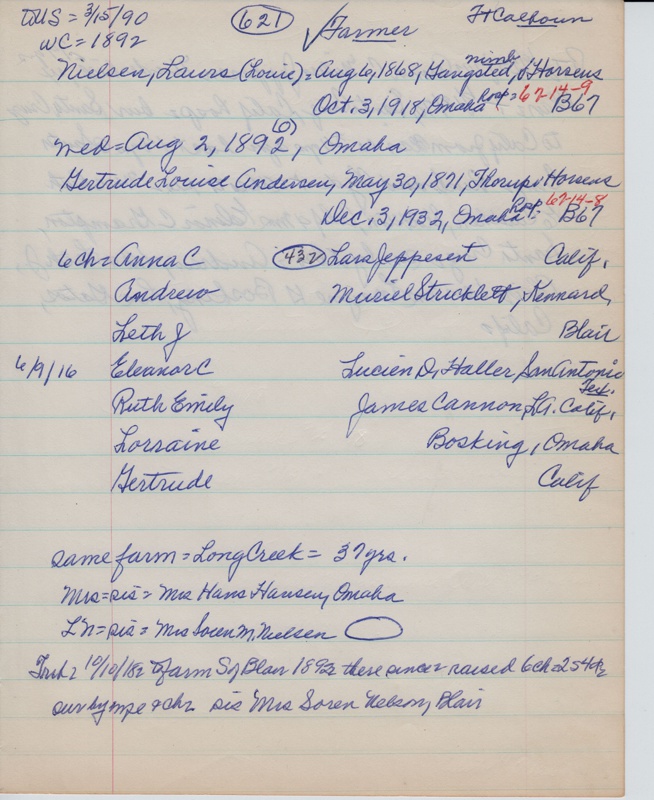 TO US = 3/15/90 621 ✓Farmer Ft Calhoun
WC = 1892
nimb
Nielsen, Laurs (Louie) = Aug 6, 1868, Hangsted, v Horsens
Oct. 3, 1918, Omaha Hosp = 67-14-9 B67
wed = Aug 2, 1892 (0), Omaha
Gertrude Louise Andersen, May 30, 1871, Thorup v Horsens
Dec. 3, 1932, Omaha Hosp: 67-14-8 B67
6 ch = Anna C 432 Lars Jeppesen Calif.
Andrew Muriel Stricklett, Kennard,
Leth J Blair
6/9/16 Eleanor C Lucien D. Haller, San Antonio
Tex.
Ruth Emily James Cannon, L.A. Calif.
Lorraine Bosking, Omaha
Gertrude Calif
same farm = Long Creek = 37 yrs.
Mrs = sis = Mrs Hans Hansen, Omaha
L'n = sis = Mrs Soren M. Nielsen
10/10/18 = farm S of Blair 1892 there since = raised 6 ch = 2s 4d
sur by mpe & ch sis Mrs Soren Nelson, Blair